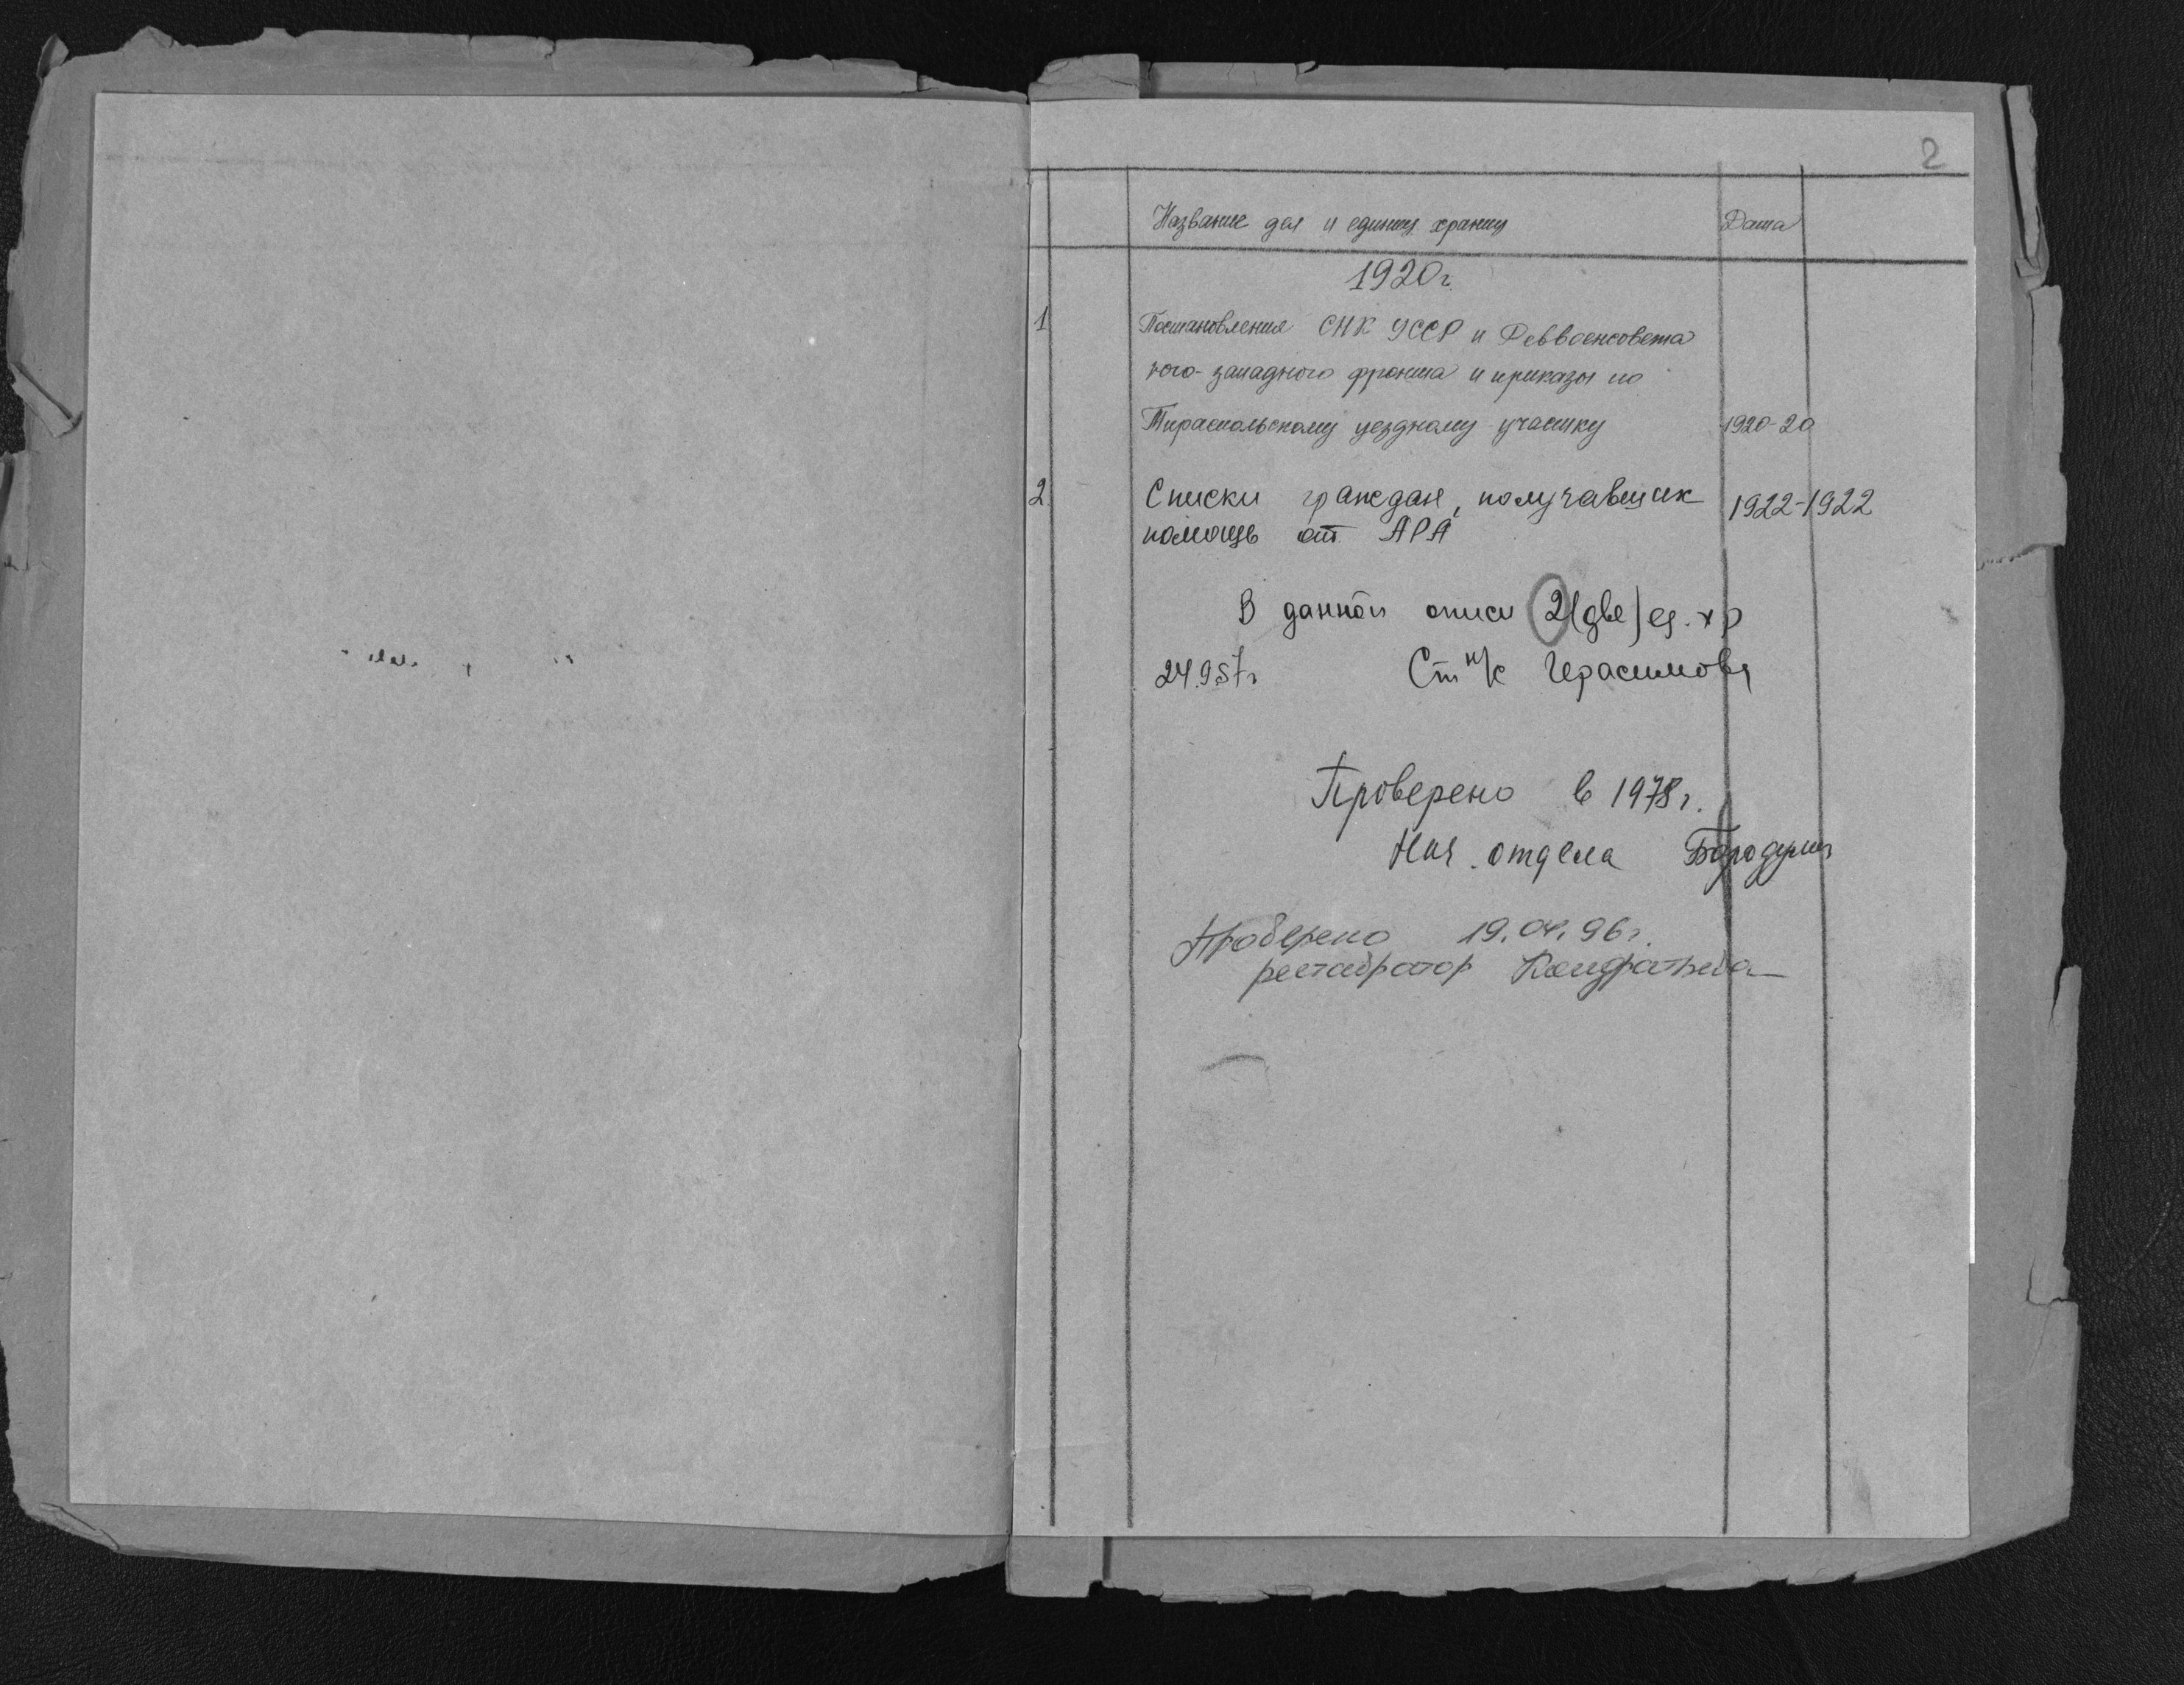 2
Название дел и единиц хранения Дата
1920г.
1 Постановления СНК УССР и Реввоенсовета
юго-западного фронта и приказы по
Тираспольскому уездному участку 1920-20
2 Списки граждан, получавших 1922-1922
помощь от АРА
В данной описи 2(две) ед. хр
24.9.57г Ст н/с Герасимова
Проверено в 1978г.
Нач. отдела
Проверено 19.04.96г.
реставратор Кондратьева